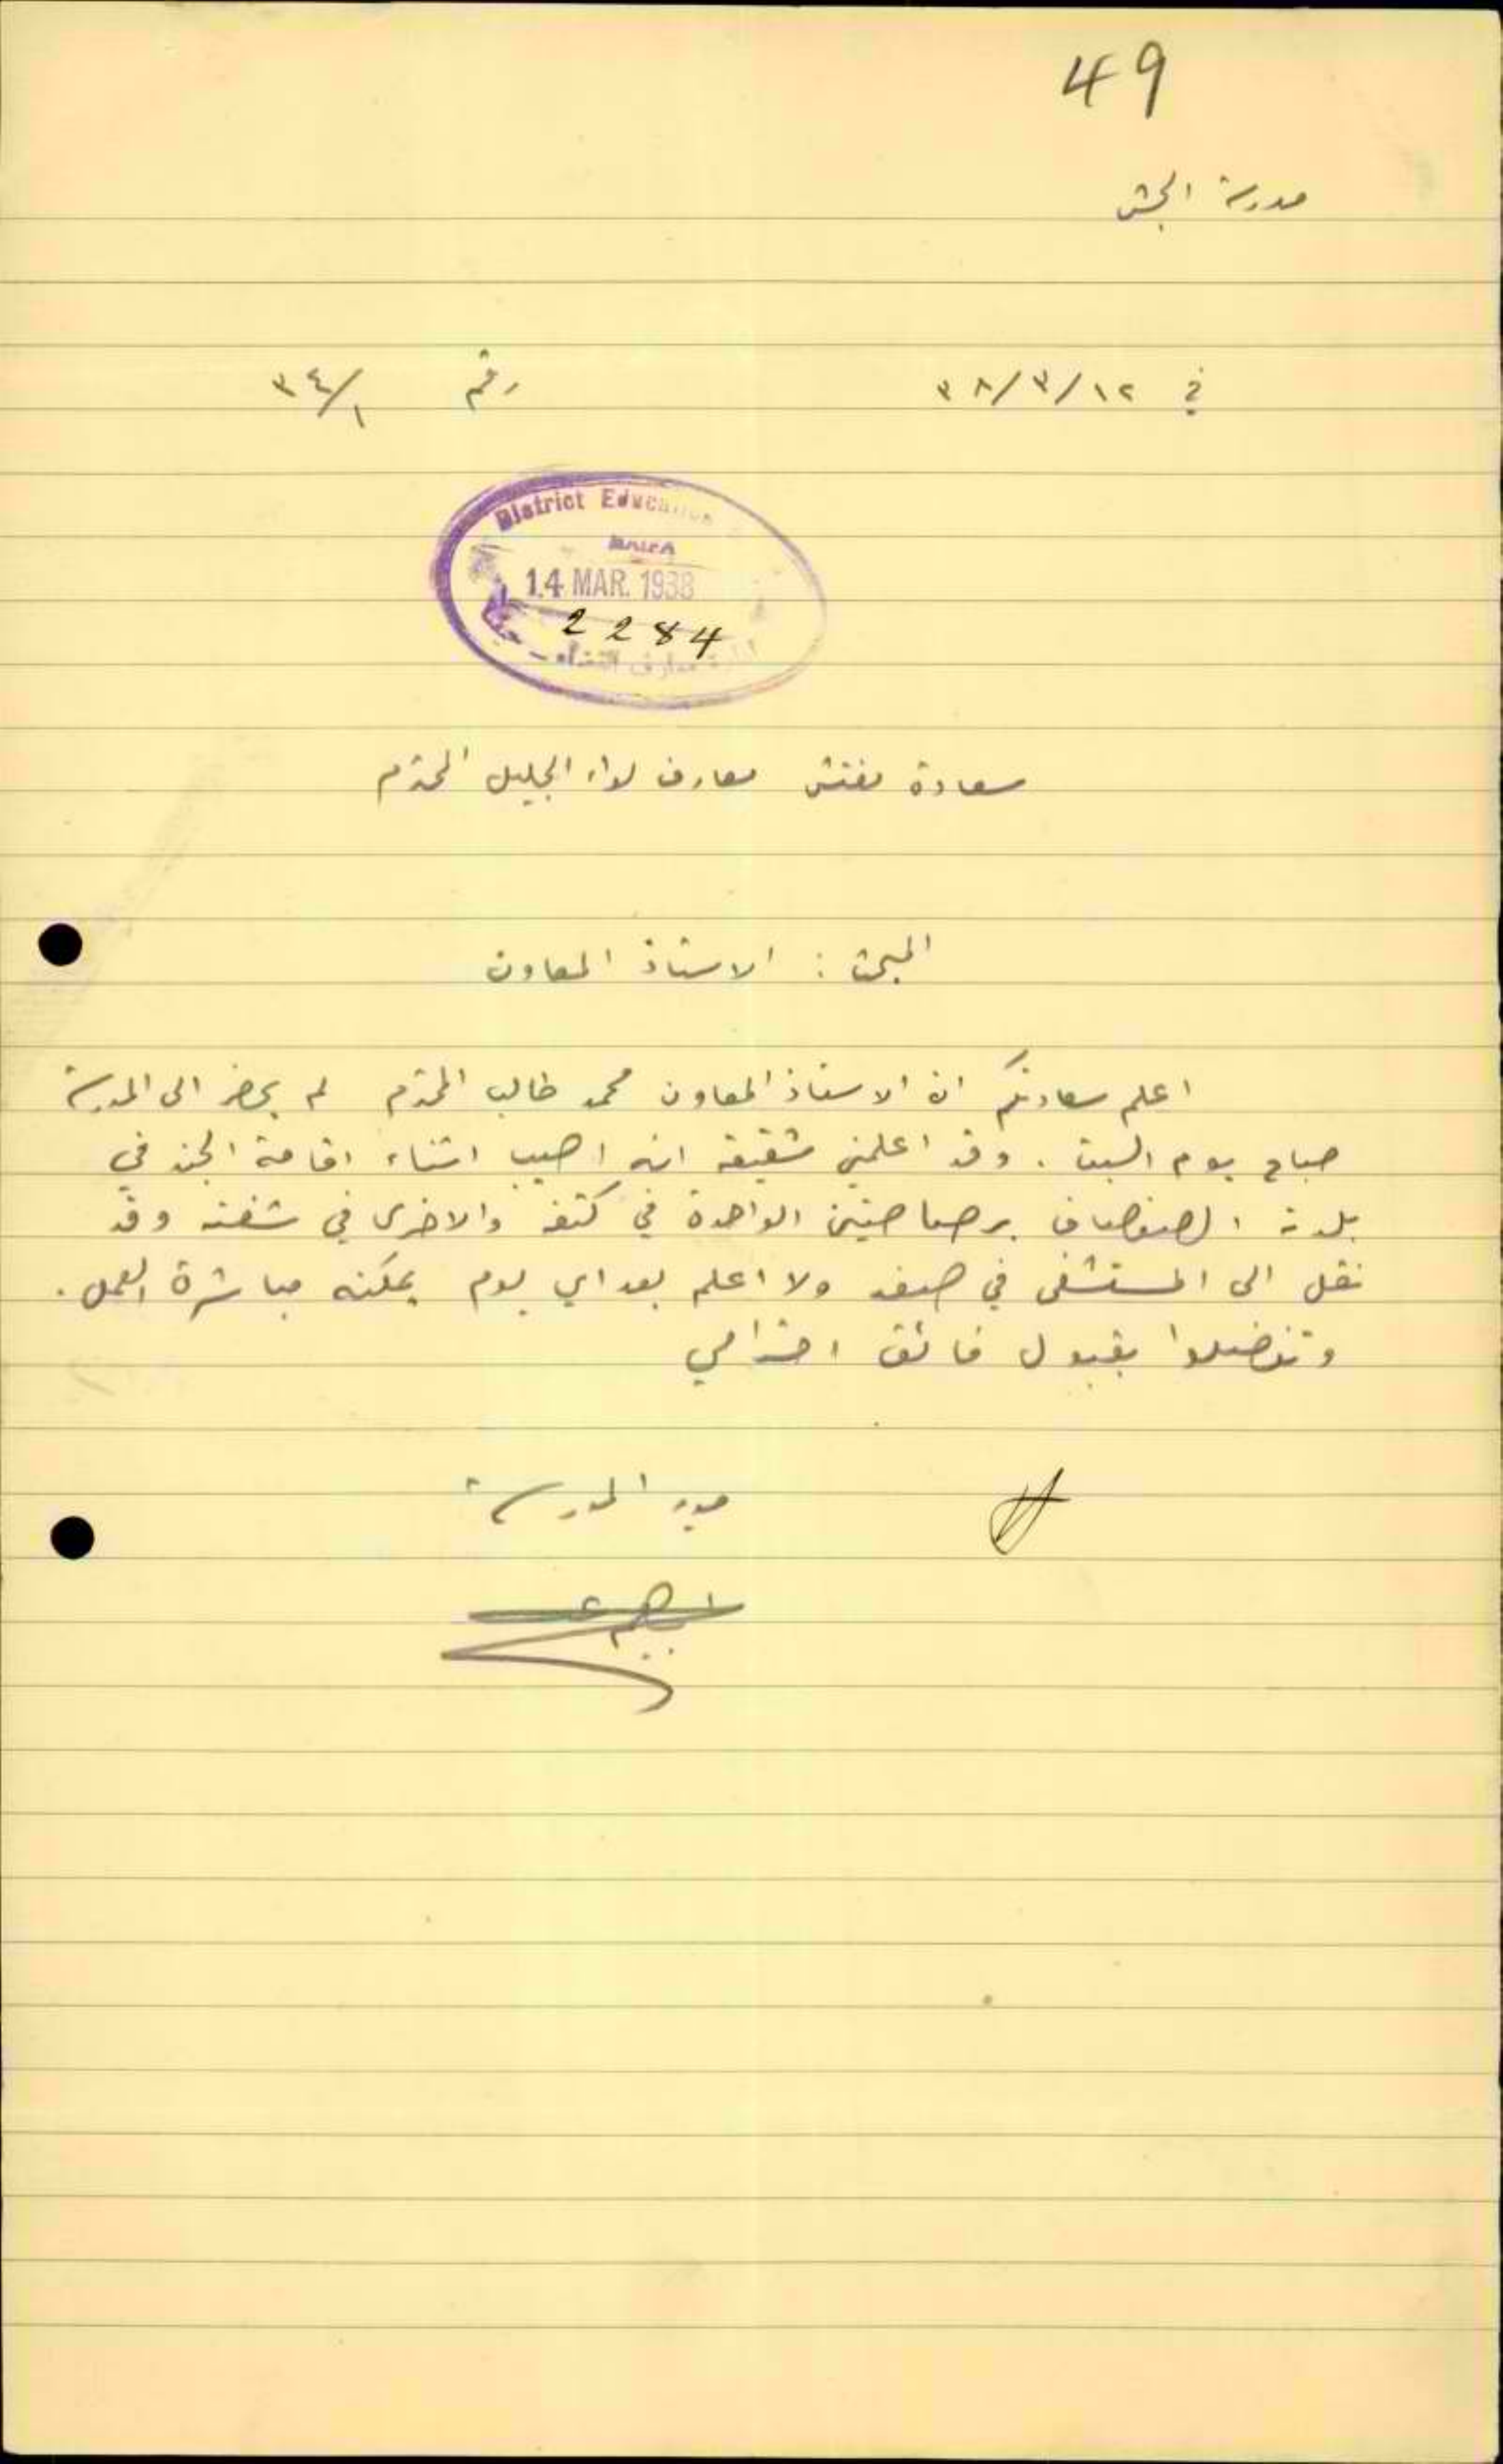 49
مدرسة الجش
في ١٢/٣/٣٨ رقم ٣٤/١
District Education
HAIFA
14 MAR. 1938
2284
معارف اللواء - حيفا
سعادة مفتش معارف لواء الجليل المحترم
المبحث : الاستاذ المعاون
اعلم سعادتكم ان الاستاذ المعاون محمد طالب المحترم لم يحضر الى المدرسة
صباح يوم السبت . وقد اعلمني شقيقه انه اصيب اثناء اقامة الجند في
بلدة الصفصاف برصاصتين الواحدة في كتفه والاخرى في شفته وقد
نقل الى المستشفى في صفد ولا اعلم بعد اي يوم يمكنه مباشرة العمل .
وتفضلوا بقبول فائق احترامي
مدير المدرسة